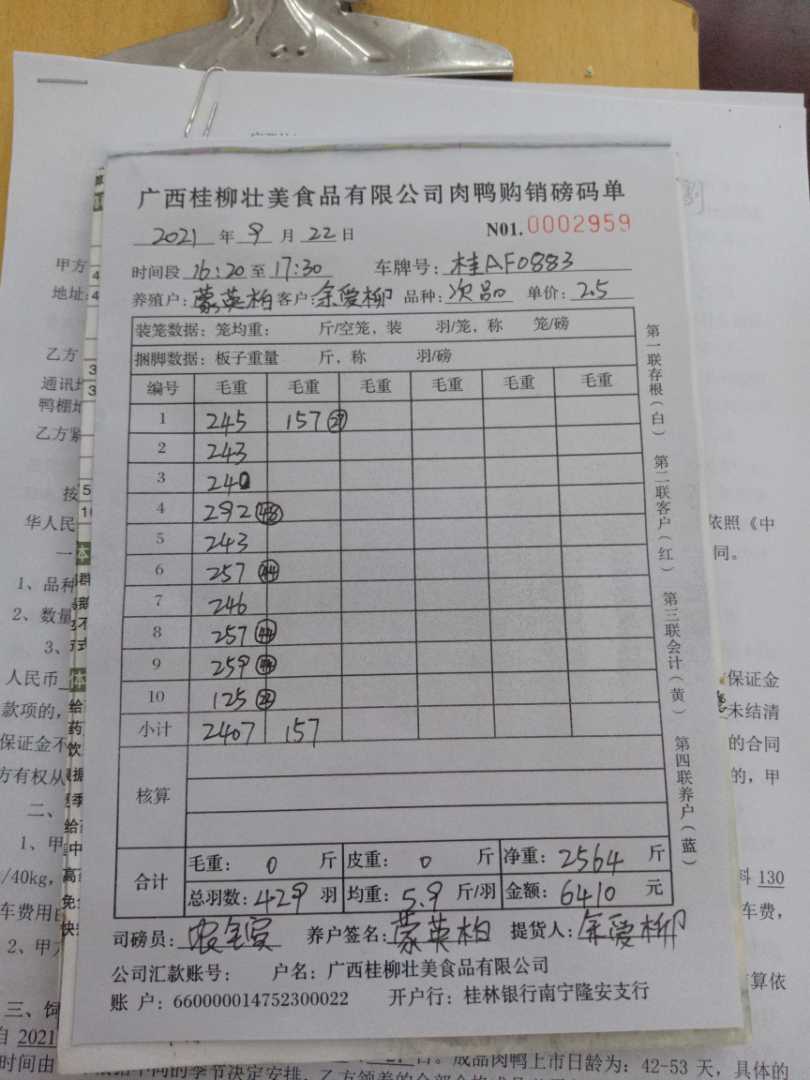 广西桂柳壮美食品有限公司肉鸭购销磅码单
2021 年 9 月 22 日 N01. 0002959
时间段 16:20 至 17:30 车牌号: 桂AF0883
养殖户: 蒙英柏 客户: 余爱柳 品种: 次品 单价: 2.5
装笼数据: 笼均重: 斤/空笼, 装 羽/笼, 称 笼/磅
捆脚数据: 板子重量 斤, 称 羽/磅
编号 毛重 毛重 毛重 毛重 毛重 毛重
1 245 157 27
2 243
3 240
4 292 48
5 243
6 257 44
7 246
8 257 44
9 259 44
10 125 22
小计 2407 157
核算
合计
毛重: 0 斤 皮重: 0 斤 净重: 2564 斤
总羽数: 429 羽 均重: 5.9 斤/羽 金额: 6410 元
司磅员: 养户签名: 蒙英柏 提货人: 余爱柳
公司汇款账号: 户名: 广西桂柳壮美食品有限公司
账 户: 660000014752300022 开户行: 桂林银行南宁隆安支行
第一联存根(白) 第二联客户(红) 第三联会计(黄) 第四联养户(蓝)
甲方
地址:
乙方
通讯地
鸭棚地
乙方紧
按
华人民 依照《中
一 同。
1、品种
2、数量
3、
人民币 保证金
款项的, 未结清
保证金不 的合同
方有权从 的, 甲
二、
1、甲
/40kg, 料 130
车费用由 车费,
2、甲方
算依
三、饲
自 2021
成品肉鸭上市日龄为: 42-53 天, 具体的
时间由